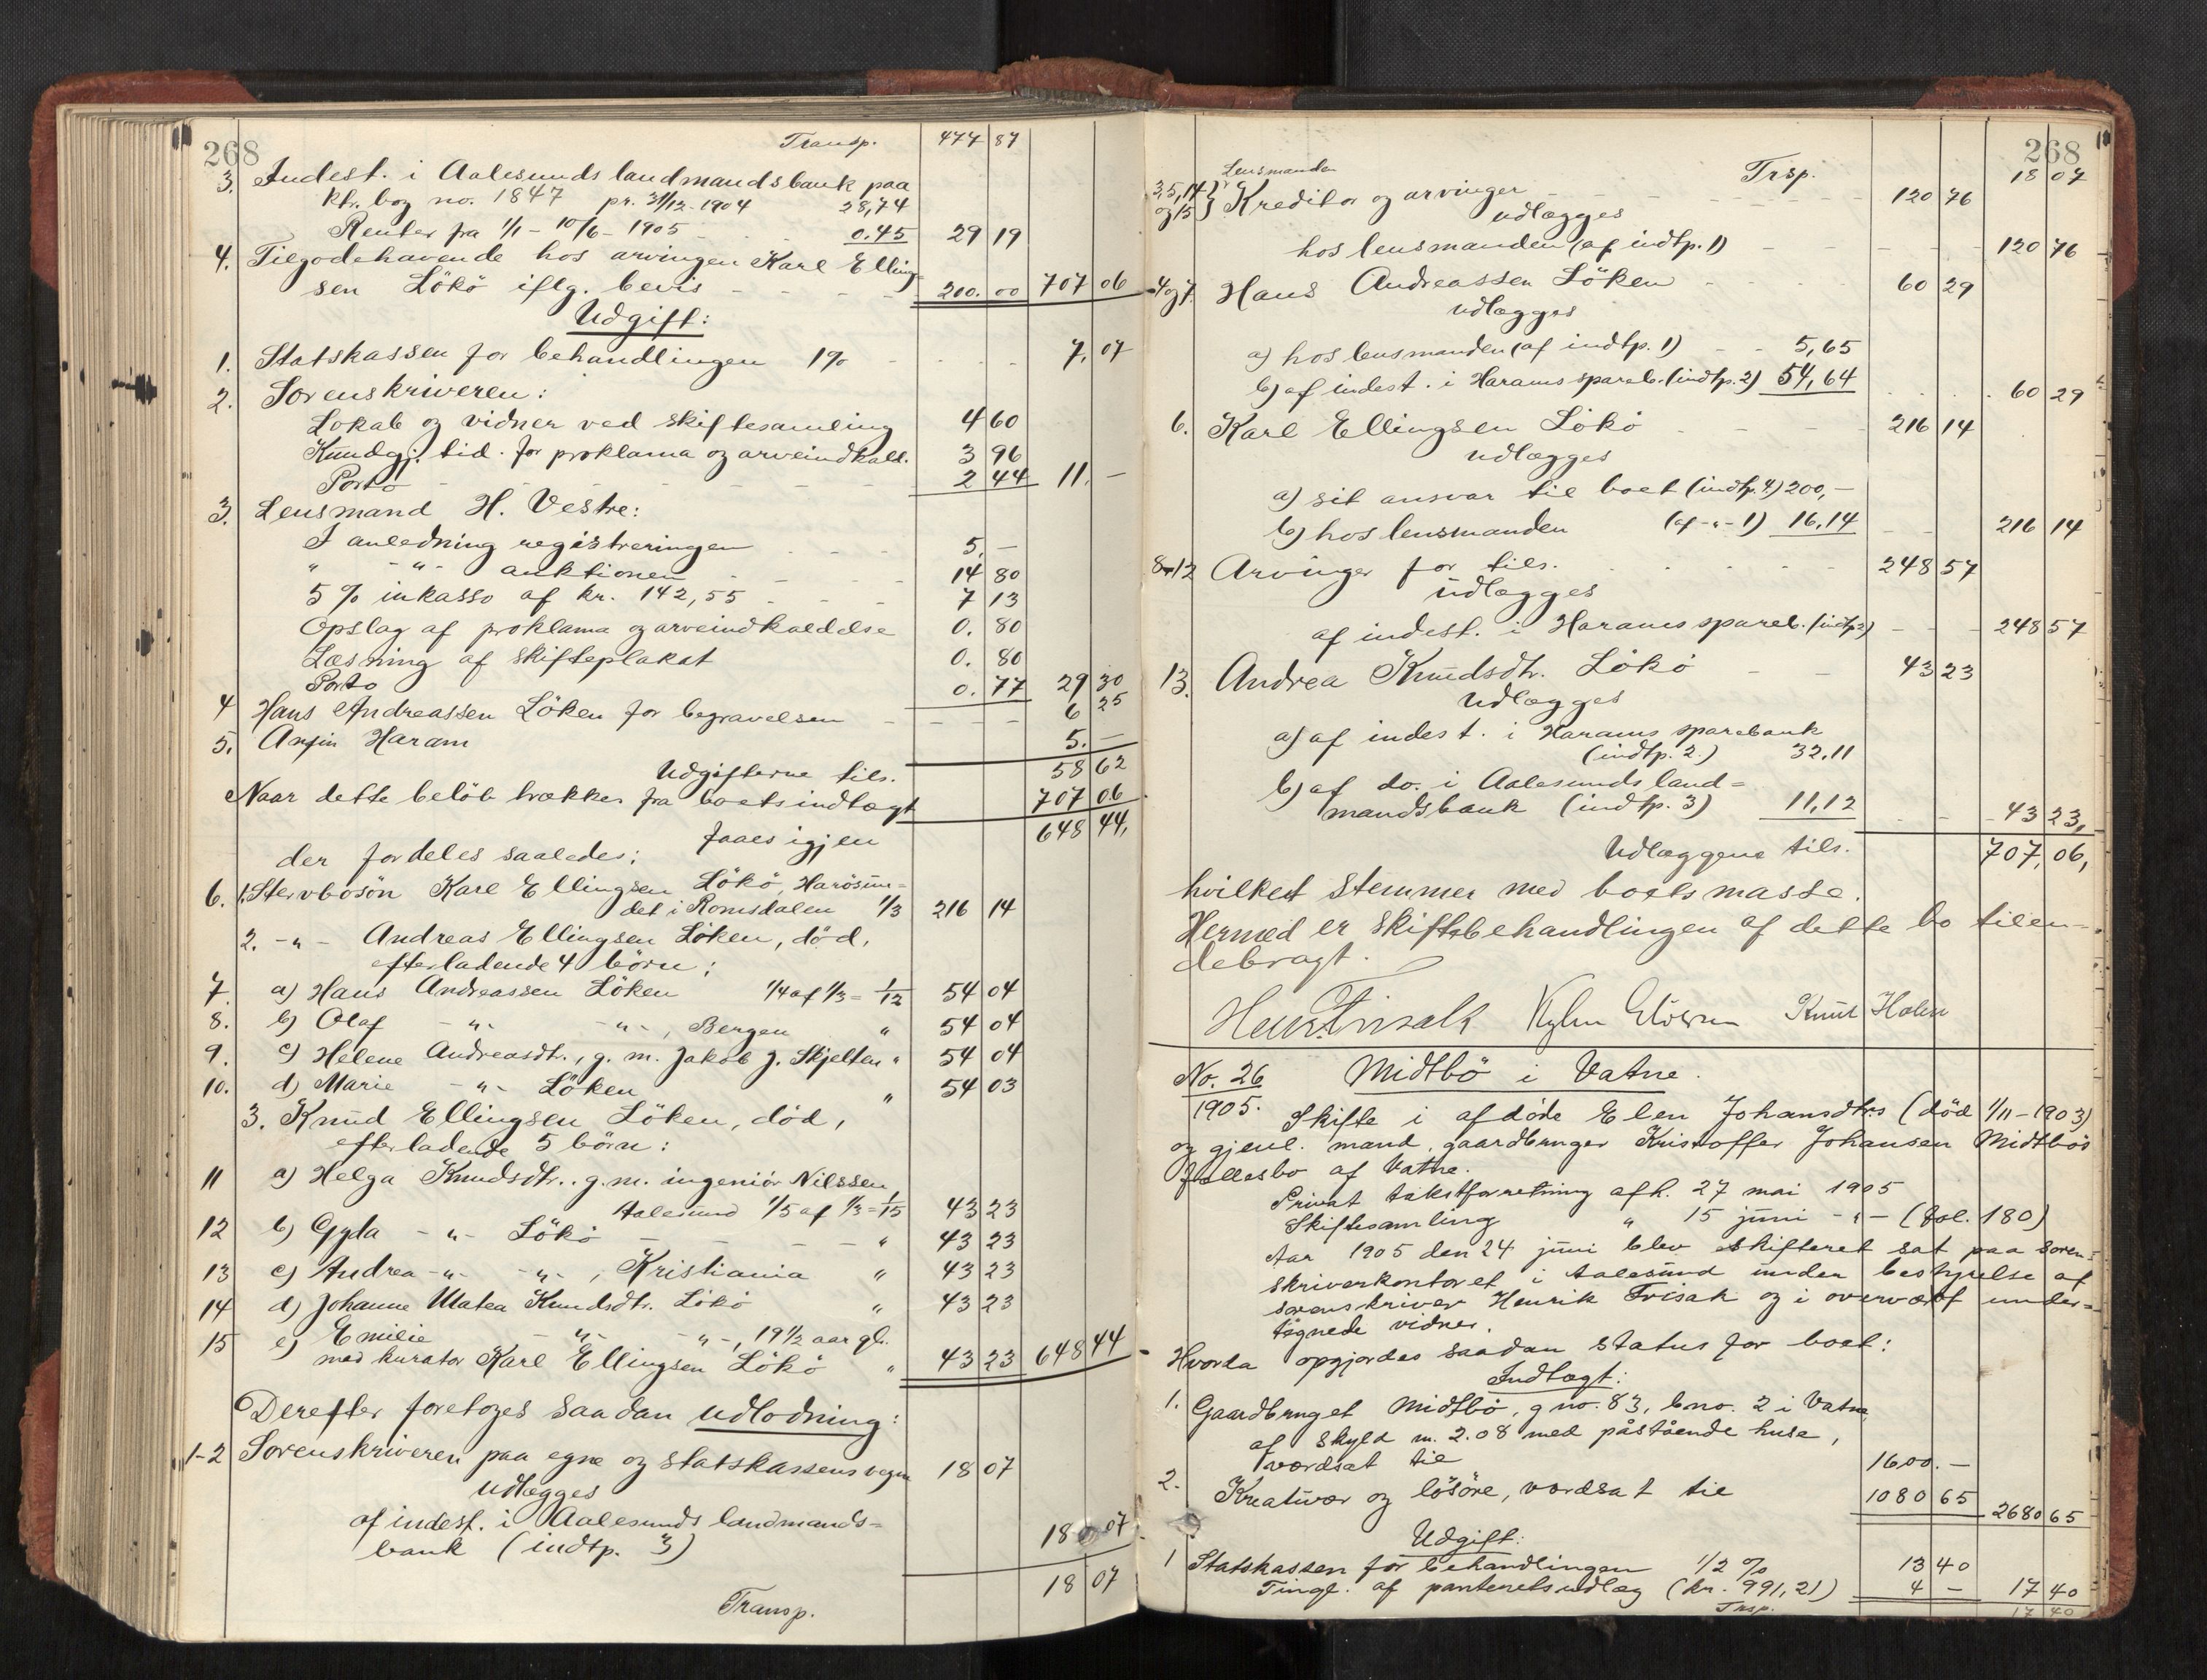 268
Transp. 477 87
3. Indest. i Aalesunds landmandsbank paa
ktr. bog no. 1847 pr. 31/12-1904 28,74
Renter fra 1/1 - 10/6 - 1905 0.45 29 19
4. Tilgodehavende hos arvingen Karl Elling-
sen Lökö iflg. bevis 200.00 707 06
Udgift:
1. Statskassen for behandlingen 1% 7,07
2. Sorenskriveren:
Lokale og vidner ved skiftesamling 4 60
Kundgj. tid. for proklama og arveindkald. 3 96
Porto 2 44 11,-
3. Lensmand H. Vestre:
I anledning registreringen 5,-
" -"- auktionen 14 80
5 % inkasso af kr. 142,55 7 13
Opslag af proklama og arveindkaldelse 0. 80
Læsning af skifteplakat 0. 80
Porto 0. 77 29 30
4 Hans Andreassen Löken for begravelsen 6 25
5. Anfin Haram 5.-
Udgifterne tils. 58 62
Naar dette belöb trækkes fra boets indtægt 707 06
faaes igjen 648 44,
der fordeles saaledes:
6. 1. Stervbosön Karl Ellingsen Lökö, Harösun-
det i Romsdalen 1/3 216 14
2. -"- Andreas Ellingsen Löken, död,
efterladende 4 börn:
7. a) Hans Andreassen Löken 1/4 af 1/3 = 1/12 54 04
8. b) Olaf -"- -"-, Bergen " 54 04
9. c) Helene Andreasdt., g. m. Jakob J. Skjelten " 54 04
10. d) Marie -"- Löken " 54 03
3. Knud Ellingsen Löken, död,
efterladende 5 börn:
11 a) Helga Knudsdtr. g. m. ingeniör Nilssen,
Aalesund 1/5 af 1/3 = 1/15 43 23
12 b) Gyda -"- Lökö " 43 23
13 c) Andrea -"- -"-, Kristiania " 43 23
14 d) Johanne Matea Knudsdtr. Lökö " 43 23
15 e) Emilie -"- -"-, 19 1/2 aar gl.
med kurator Karl Ellingsen Lökö " 43 23 648 44
Derefter foretoges saadan udlodning:
1-2 Sorenskriveren paa egne og statskassens vegne 18 07
udlægges
af indest. i Aalesunds landmands-
bank (indtp. 3) 18 07
18 07
Transp.
268
Trsp. 18 07
Lensmanden
3,5,14 og 15 } Kreditor og arvinger 120 76
udlægges
hos lensmanden (af indtp. 1) 120 76
4 og 7. Hans Andreassen Löken 60 29
udlægges
a) hos lensmanden (af indtp. 1) 5,65
b) af indest. i Harams spareb. (indtp. 2) 54,64 60 29
6. Karl Ellingsen Lökö 216 14
udlægges
a) sit ansvar til boet (indtp. 4) 200,-
b) hos lensmanden (af -"- 1) 16,14 216 14
8-12 Arvinger for tils. 248 57
udlægges
af indest. i Harams spareb. (indtp. 2) 248 57
13. Andrea Knudsdtr. Lökö 43 23
Udlægges
a) af indest. i Harams sparebank
(indtp. 2.) 32,11
b) af do. i Aalesunds land-
mandsbank (indtp. 3) 11,12 43 23,
Udlæggene tils. 707,06,
hvilket stemmer med boets masse.
Hermed er skiftebehandlingen af dette bo tilen-
debragt.
Henr. Frisak Knut Holen
No. 26 Midtbö i Vatne.
1905. Skifte i afdöde Elen Johansdtrs (död 1/11-1903)
og gjenl. mand, gaardbruger Kristoffer Johansen Midtbös
fællesbo af Vatne.
Privat takstforretning afh. 27 mai 1905
Skiftesamling " 15 juni -"- (fol. 180)
Aar 1905 den 24 juni blev skifteret sat paa soren-
skriverkontoret i Aalesund under bestyrelse af
sorenskriver Henrik Frisak og i overvær af under-
tegnede vidner.
Hvorda opgjordes saadan status for boet:
Indtægt:
1. Gaardbruget Midtbö, gno. 83, bno. 2 i Vatne
af skyld m. 2.08 med påstående huse,
værdsat til 1600.-
2. Kreaturer og lösöre, værdsat til 1080 65 2680 65
Udgift:
1 Statskassen for behandlingen 1/2 % 13 40
Tingl. af panteretsudlæg (kr. 991,21) 4 - 17 40
Trsp. 17 40